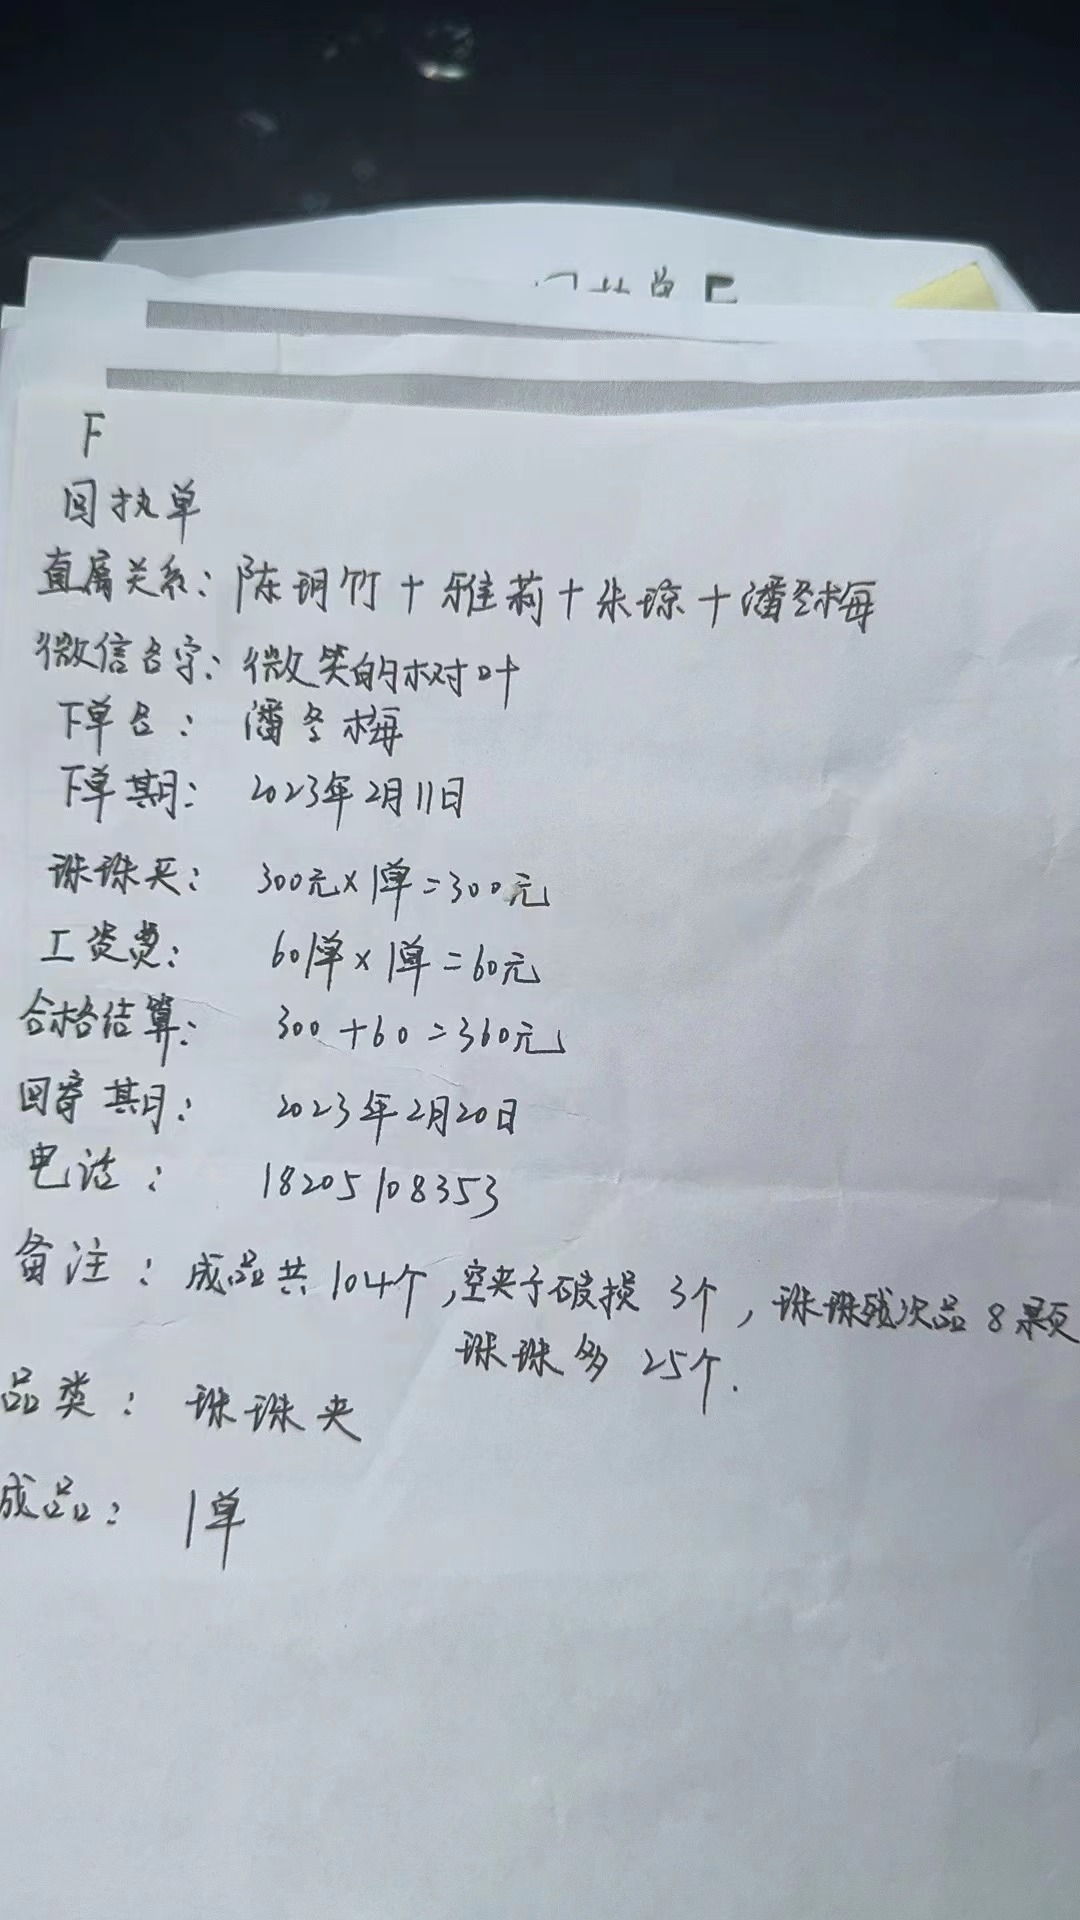 F
回执单
直属关系：陈玥竹＋雅莉＋朱琼＋潘冬梅
微信名字：微笑的树叶
下单名：潘冬梅
下单期：2023年2月11日
珠珠买：300元×1单=300元
工资费：60/单×1单=60元
合格结算：300+60=360元
回寄期：2023年2月20日
电话：18205108353
备注：成品共104个,空夹子破损3个,珠珠残次品8颗
珠珠多25个.
品类：珠珠夹
成品：1单